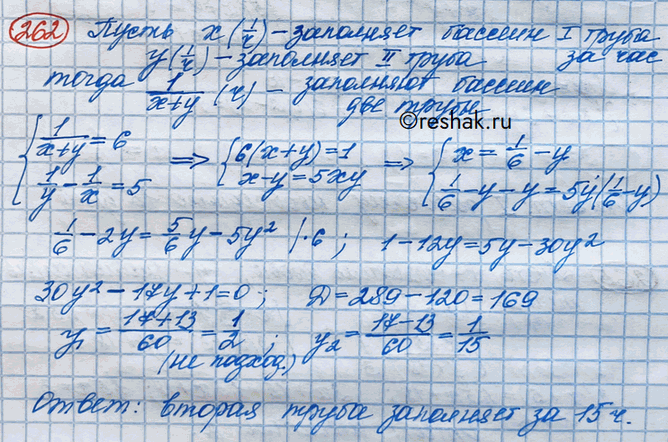 262 Пусть x (1/ч) – заполняет бассейн I труба
y (1/ч) – заполняет II труба за час
тогда 1/(x+y) (ч) – заполняют бассейн
две трубы
©reshak.ru
{ 1/(x+y) = 6 ⇒ { 6(x+y)=1 ⇒ { x = 1/6 – y
1/y – 1/x = 5 x–y=5xy 1/6 – y – y = 5y(1/6 – y)
1/6 – 2y = 5/6 y – 5y² |·6 ; 1–12y=5y–30y²
30y² – 17y + 1=0 ; D = 289 – 120 = 169
y₁ = (17+13)/60 = 1/2 ; y₂ = (17–13)/60 = 1/15
(не подход.)
Ответ: вторая труба заполняет за 15 ч.